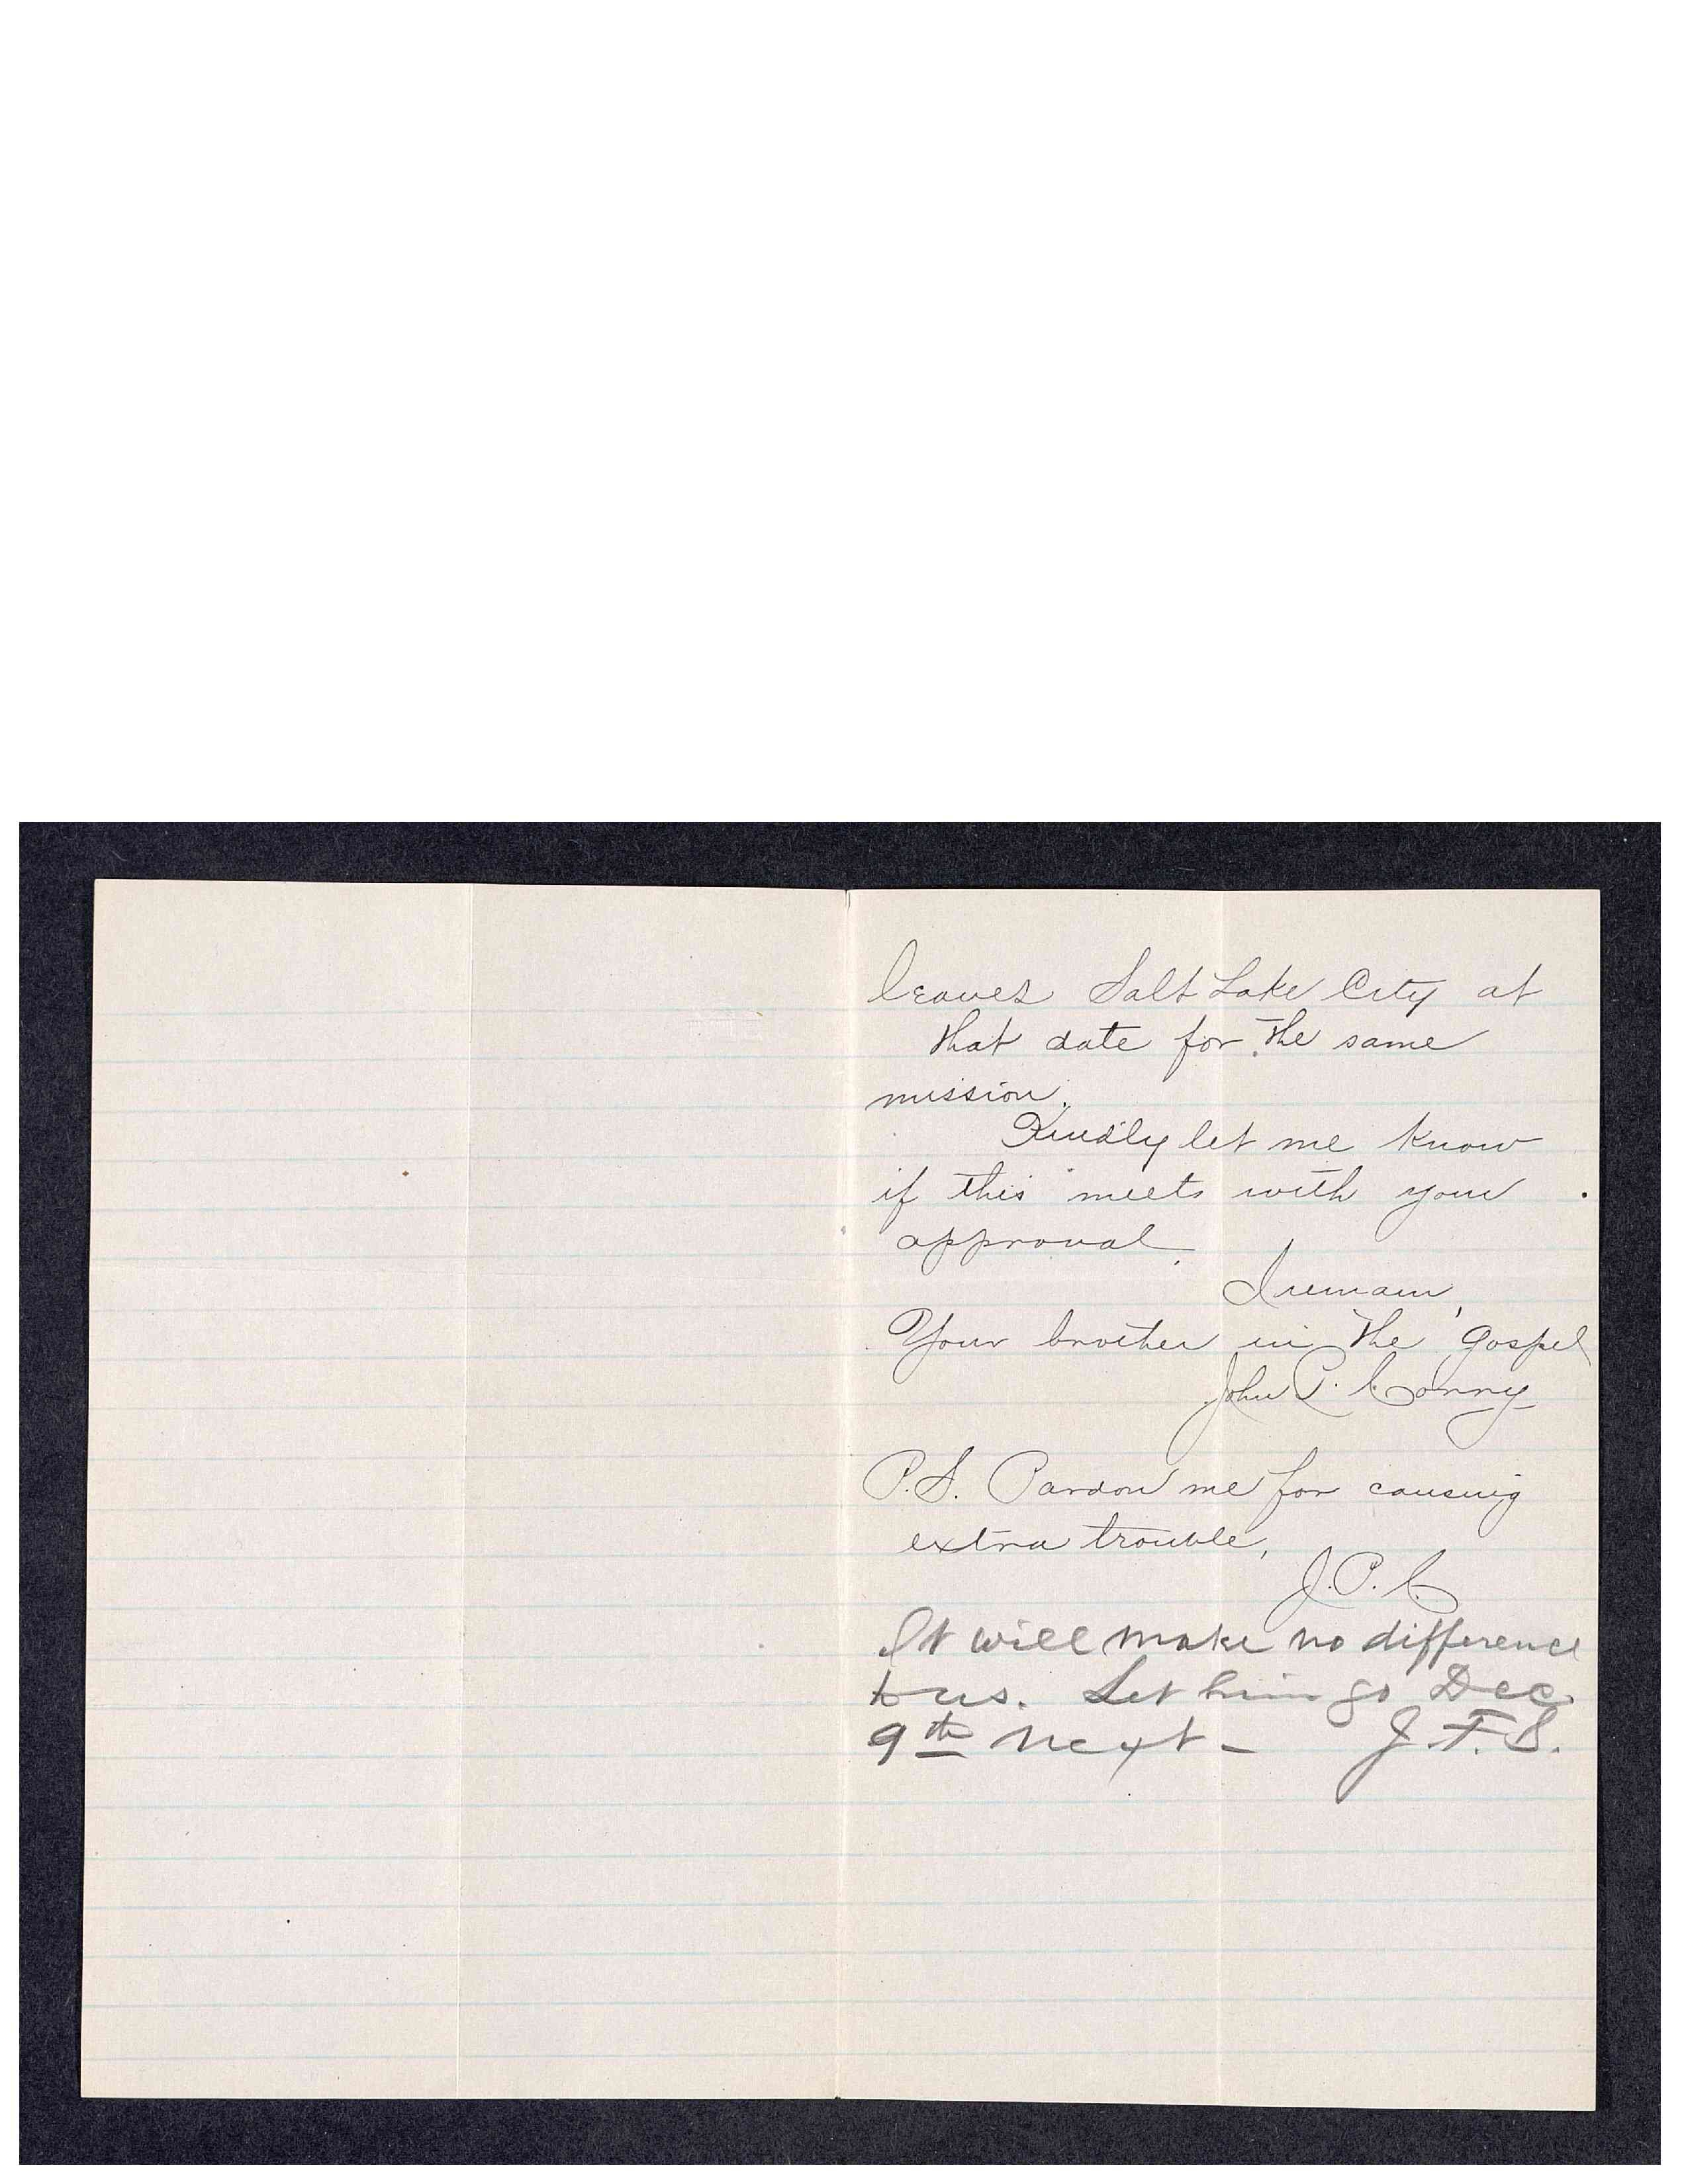 leaves Salt Lake City at
that date for the same
mission.
Kindly let me know
if this meets with your
approval.
I remain,
Your brother in the Gospel
John P. Conny
P.S. Pardon me for causing
extra trouble,
J.P.C.
It will make no difference
to us. Let him go Dec
9th next - J.F.S.